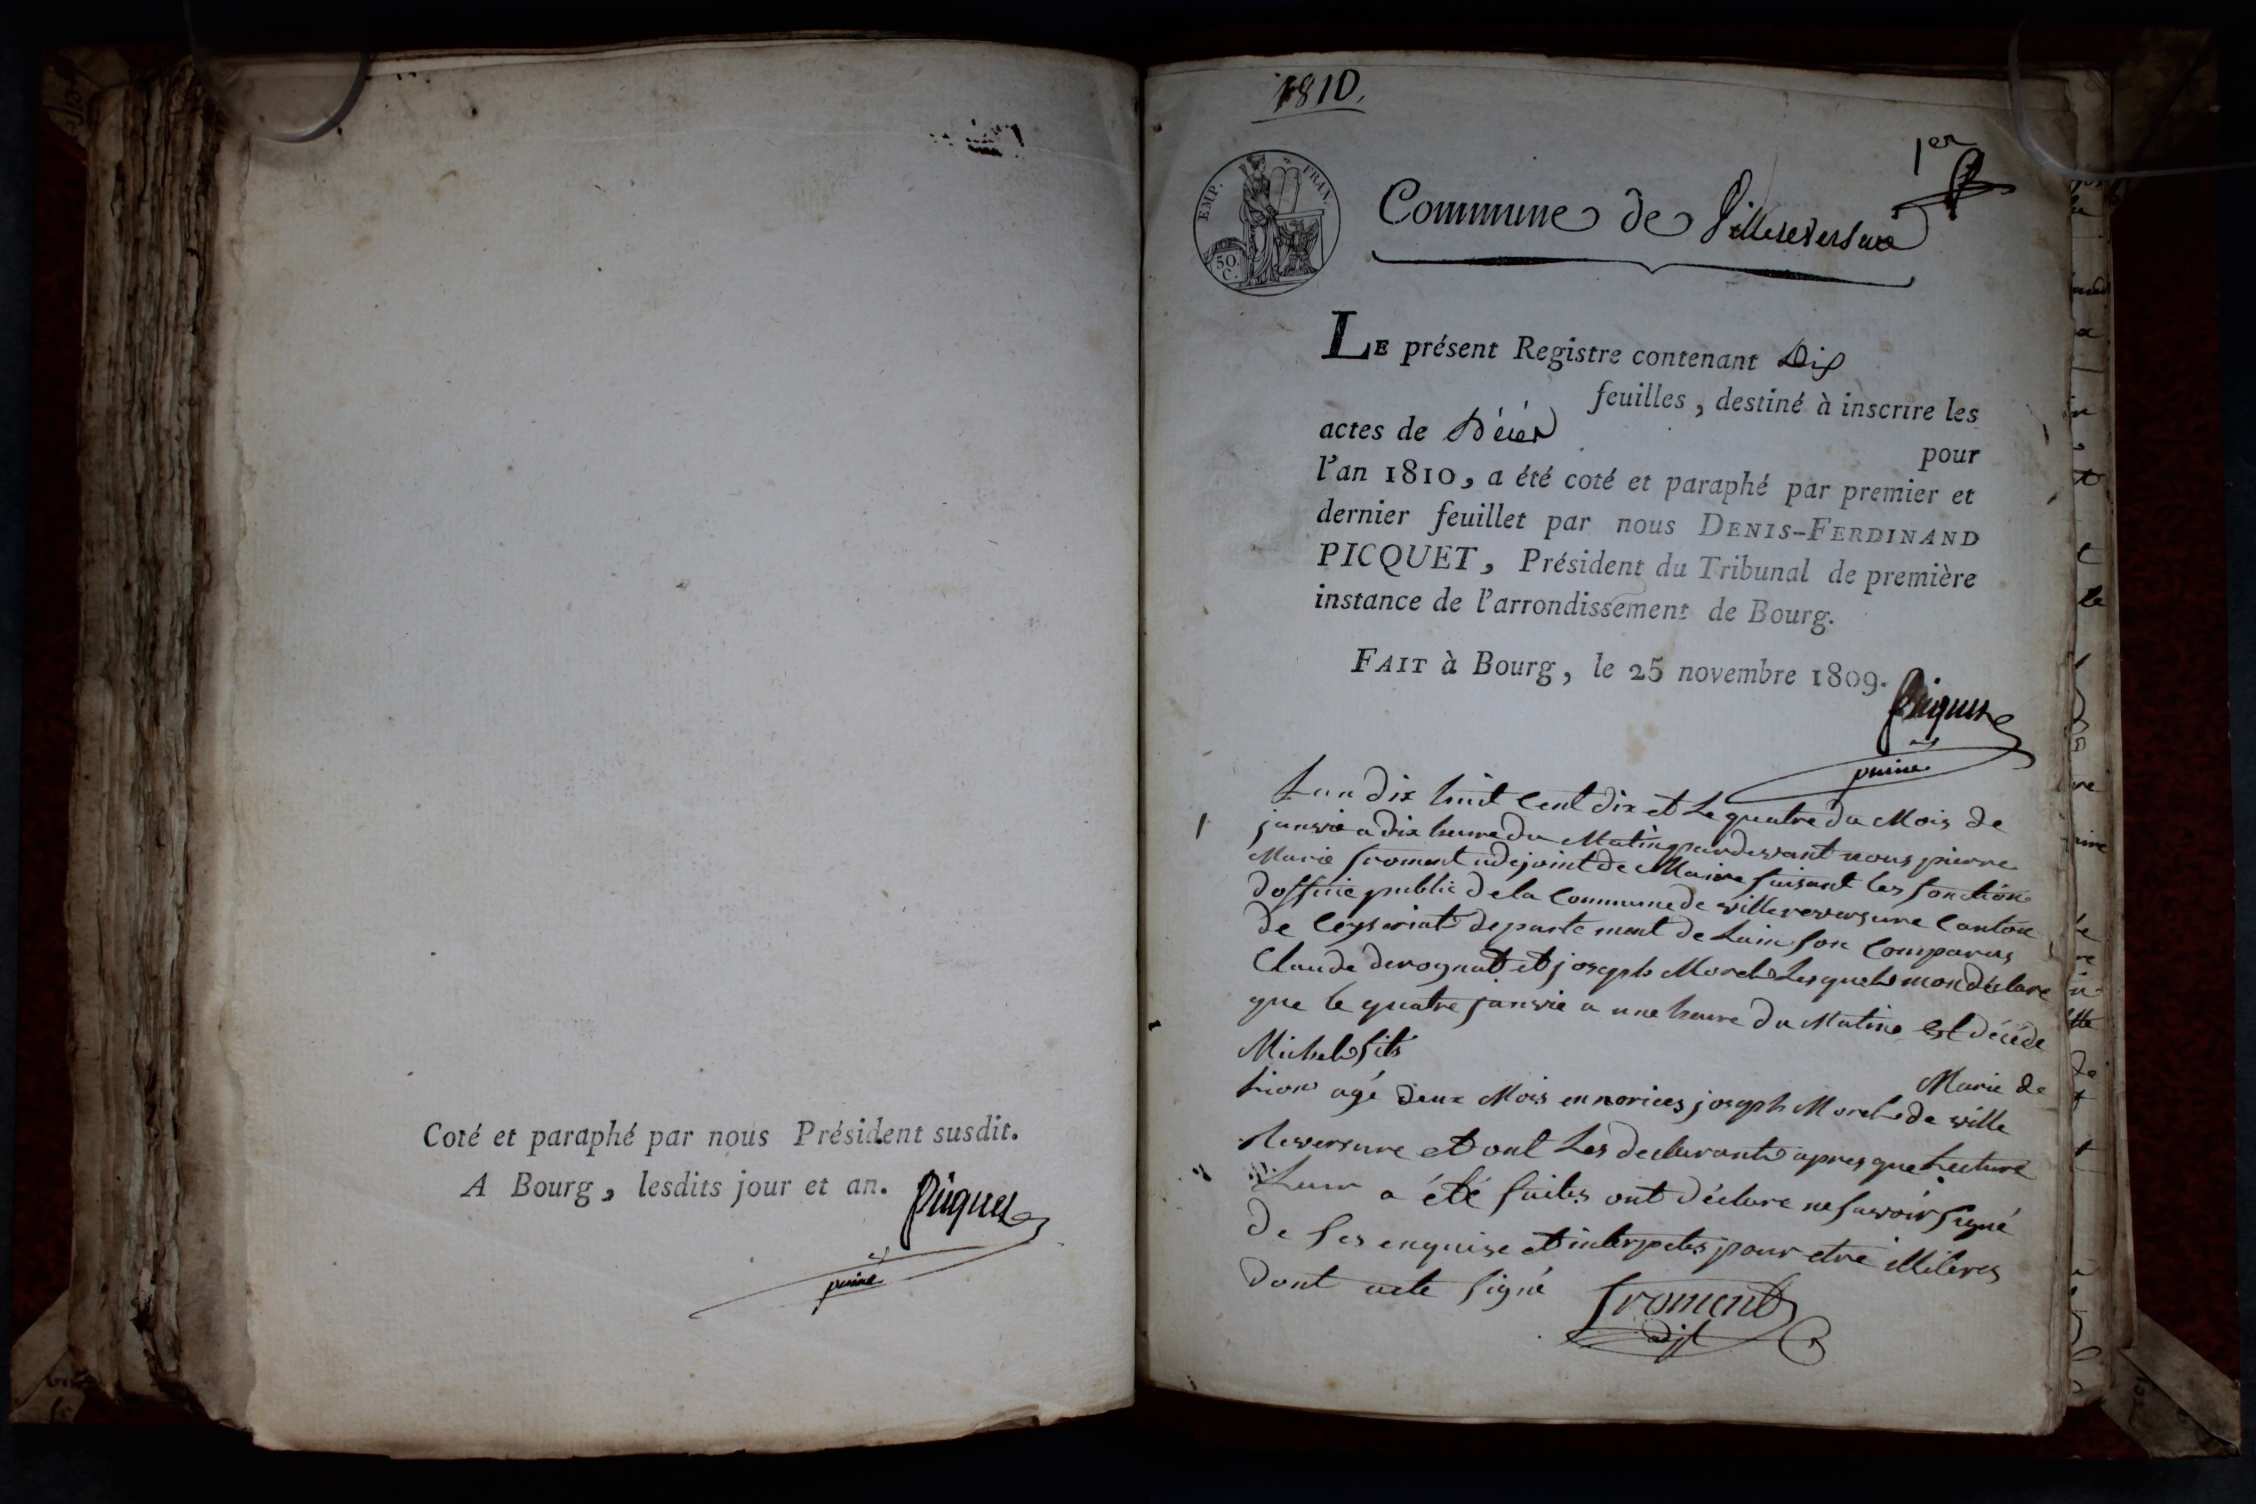 Coté et paraphé par nous Président susdit.
A Bourg, lesdits jour et an.
Picquet
1810.
1er
EMP. FRAN.
50.
C.
Commune de Villereversure
LE présent Registre contenant Dix
feuilles, destiné à inscrire les
actes de Décès
pour
l'an 1810, a été coté et paraphé par premier et
dernier feuillet par nous DENIS-FERDINAND
PICQUET, Président du Tribunal de première
instance de l'arrondissement de Bourg.
FAIT à Bourg, le 25 novembre 1809.
Picquet
Lan dix huit Cent dix et Le quatre du Mois de
janvie a dix heure du Matin pardevant nous pierre
Marie froment adejoint de Maire faisant les fonction
doffície public de la Commune de villereversure Canton
de Ceyseriat departement de Lain son Comparus
Claude derognat et joseph Morel Lesquel mon déclare
que le quatre janvie a une heure du Matin est décéde
Michel fils
Marie de
Lion agé deux Mois en norices joseph Morel de ville
Reversure et ont Les declarant apres que Lecture
Leur a été faites ont déclare ne savoir signé
de ses enquise et interpeles pour etre illiteres
dont acte signé
froment
adjt